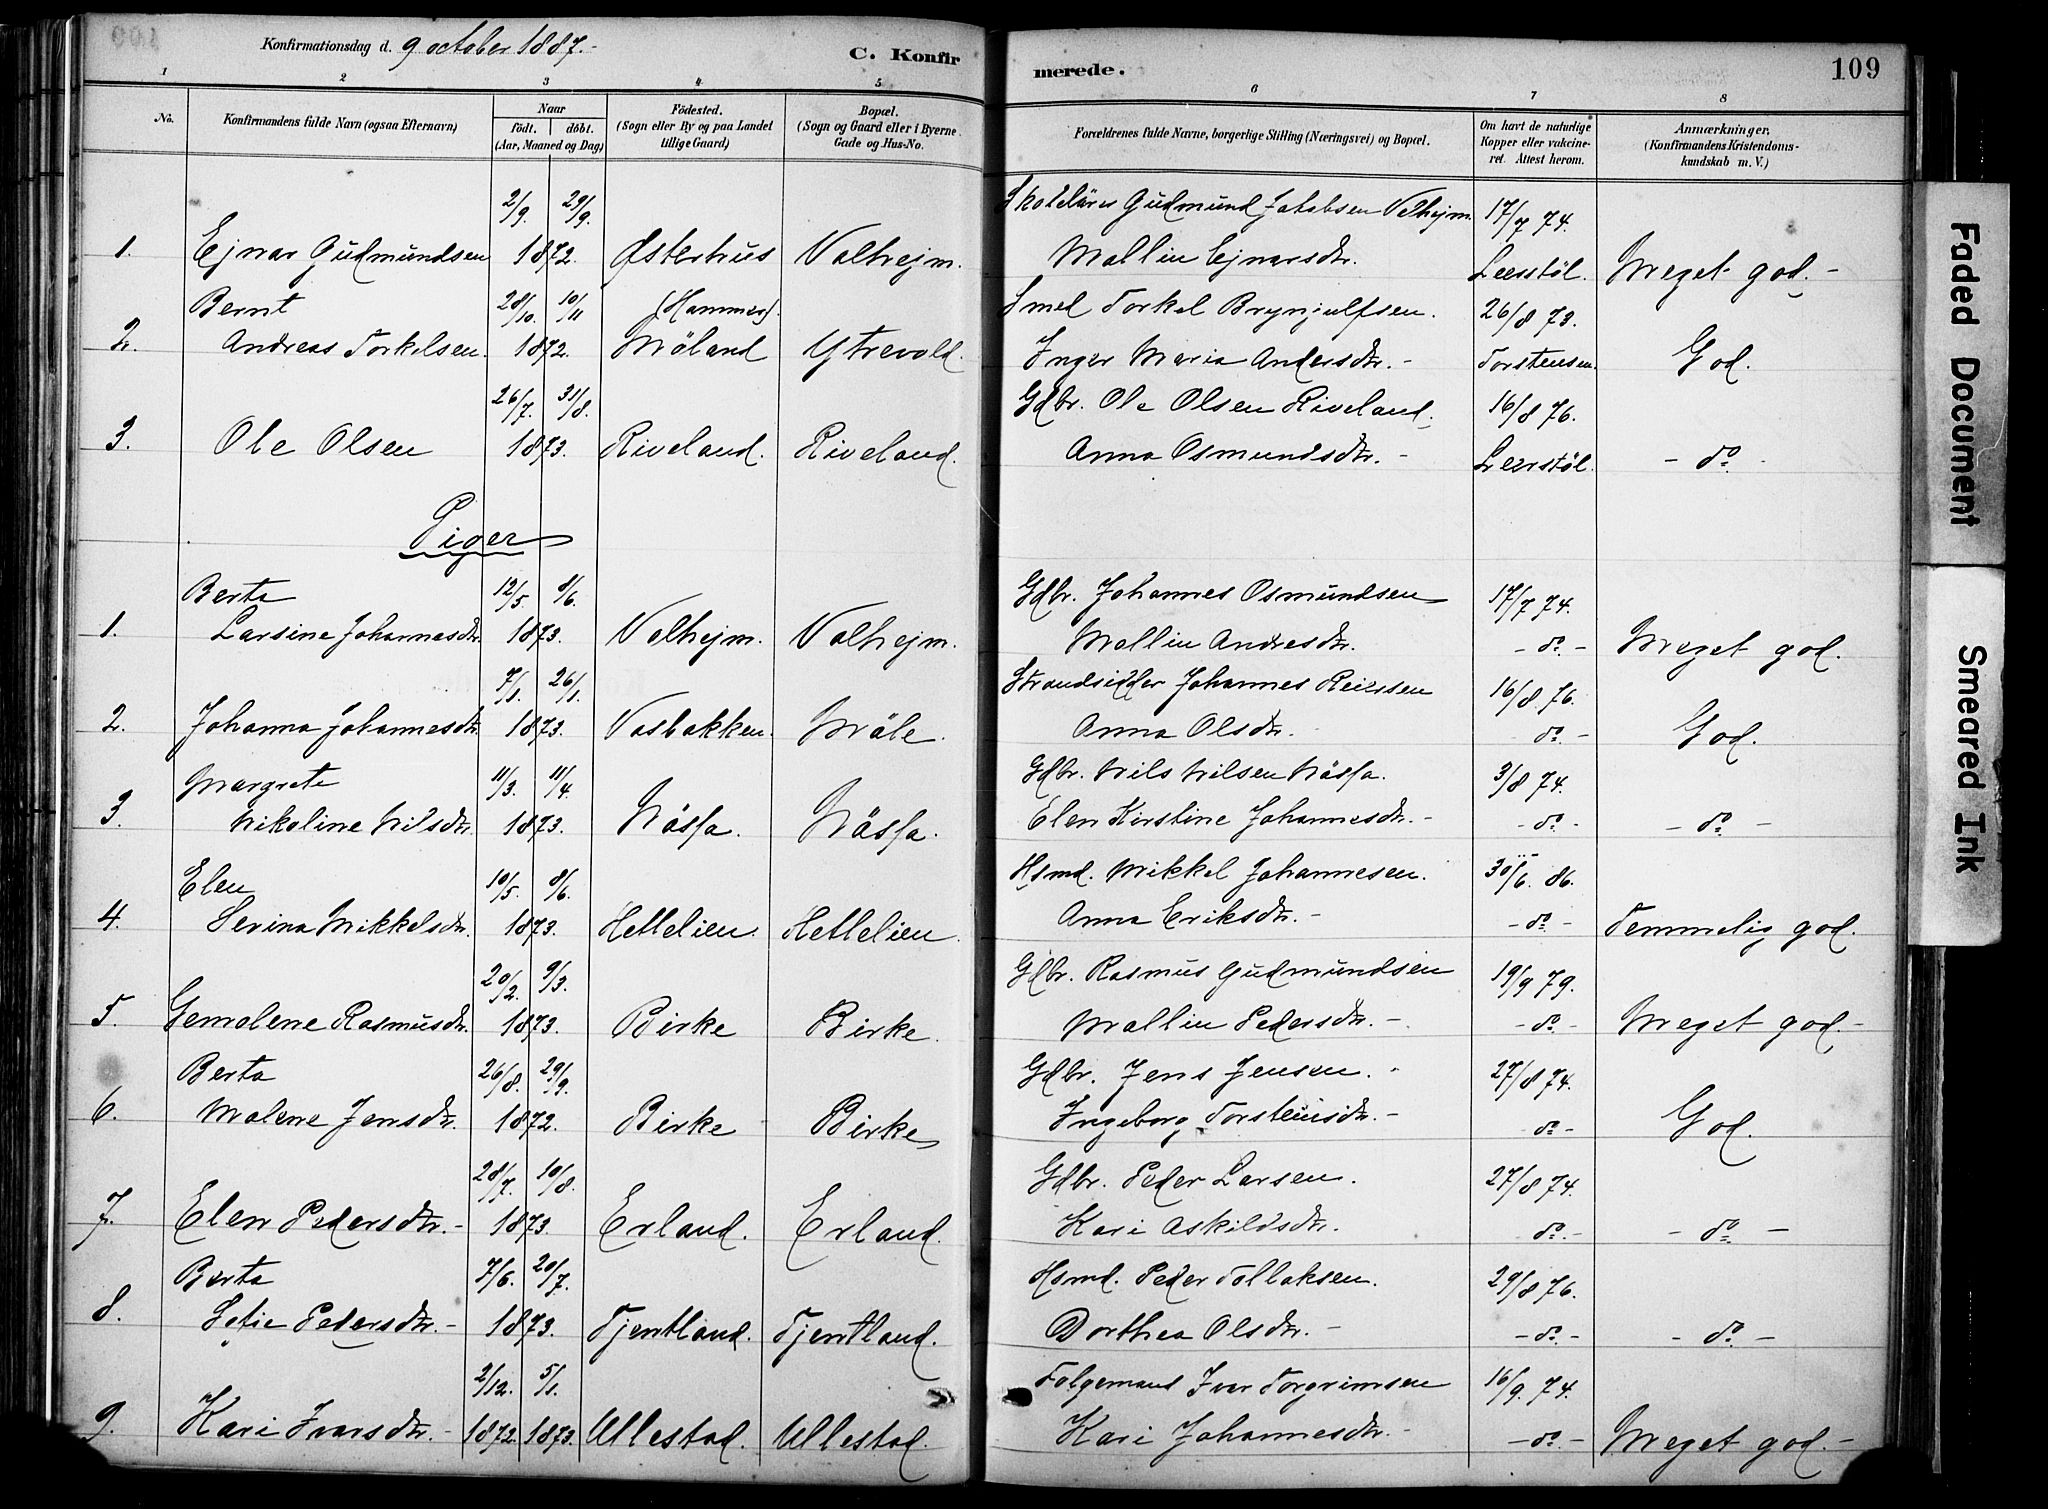 Konfirmationsdag d. 9 october 1887.-
C. Konfir
merede.
109
1 2 3 4 5 6 7 8
No.
Konfirmandens fulde Navn (ogsaa Efternavn)
Naar
födt. döbt.
(Aar, Maaned og Dag)
Födested.
(Sogn eller By og paa Landet
tillige Gaard)
Bopæl.
(Sogn og Gaard eller i Byerne
Gade og Hus-No.
Forældrenes fulde Navne, borgerlige Stilling (Næringsvei) og Bopæl.
Om havt de naturlige
Kopper eller vakcine-
ret. Attest herom.
Anmærkninger,
(Konfirmandens Kristendoms-
kundskab m. V.)
2/9. 29/9. Skolelärer Gudmund Jakobsen Velhejm. 17/7 74.
1. Ejnar Gudmundsen 1872. Østerhus Valhejm. Mallin Ejnarsdtr. Leerstöl. Meget god.-
Bernt 28/10. 10/11 (Hammer). Smed Torkel Brynjulfsen. 26/8 73.
2. Andreas Torkelsen. 1872. Möland Ytrevold. Inger Maria Andersdtr.- Torstensen. God.
26/7. 31/8. Gdbr. Ole Olsen Riveland. 16/8 76.
3. Ole Olsen 1873. Riveland. Riveland. Anna Osmundsdtr.- Leerstöl. - do -
Piger
Berta 12/5. 8/6. Gdbr. Johannes Osmundsen 17/7 74.
1. Larsine Johannesdtr. 1873. Valhejm. Valhejm. Mallin Andresdtr. - do.- Meget god.
7/1. 26/1. Strandsidder Johannes Reierssen 16/8 76.
2. Johanna Johannesdtr. 1873. Vasbakken. Mäle. Anna Olsdtr. - do.- God.
Margrete 11/3. 11/4. Gdbr. Nils Nilsen Nässa. 3/8 74.
3. Nikoline Nilsdtr. 1873. Nässa. Nässa. Elen Kirstine Johannesdtr.- - do - - do -
Elen 10/5. 8/6. Hsmd. Mikkel Johannesen. 30/6. 86.
4. Serina Mikkelsdtr. 1873. Hettelien. Hettelien. Anna Eriksdtr.- - do - Temmelig god.
20/2. 9/3. Gdbr. Rasmus Gudmundsen 19/9 79.
5. Gemalene Rasmusdtr. 1873. Birke Birke. Mallin Pedersdtr.- - do - Meget god.-
Berta 26/8. 29/9. Gdbr. Jens Jensen. 27/8 74.
6. Malene Jensdtr. 1872. Birke Birke Ingeborg Torsteinsdtr.- do - God.
28/7. 10/8. Gdbr. Peder Larsen. 27/8 74.
7. Elen Pedersdtr.- 1873. Erland. Erland. Kari Askildsdtr. do.- - do -
Berta 7/6. 20/7. Hsmd. Peder Tollaksen. 29/8 76.
8. Sofie Pedersdtr.- 1873. Tjentland. Tjentland. Dorthea Olsdtr.- - do - - do -
2/12. 5/1. Folgemand Ivar Torgrimsen 16/9. 74.
9. Kari Ivarsdtr.- 1872. 1873. Ullestad. Ullestad. Kari Johannesdtr.- - do - Meget god.-
Faded Document
Smeared Ink